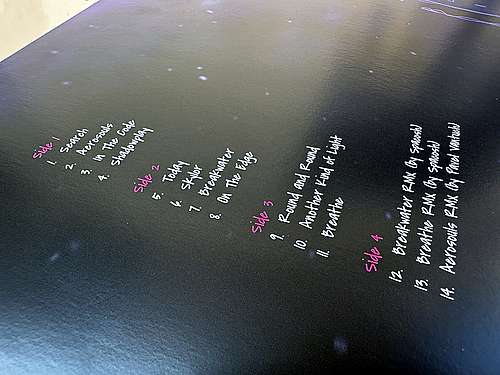 Side 1
1. Search
2. Aerosouls
3. In The Code
4. Shadowplay
Side 2
5. Today
6. Skylor
7. Breakwater
8. On The Edge
Side 3
9. Round and Round
10. Another Kind of Light
11. Breathe
Side 4
12. Breakwater RMX (by spacedo)
13. Breathe RMX (by spacedo)
14. Aerosouls RMX (by Pavel Vantuld)